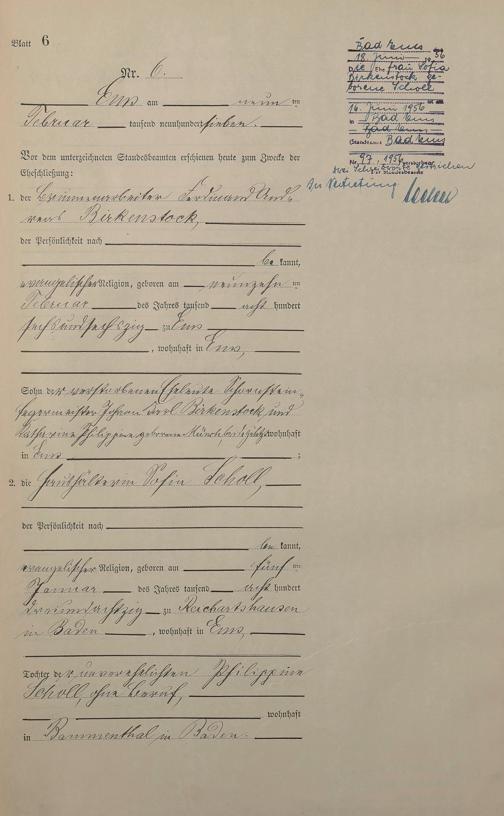 Blatt 6
Nr. 6.
Ems am neunten
Februar tausend neunhundert sieben.
Vor dem unterzeichneten Standesbeamten erschienen heute zum Zwecke der
Eheschließung:
1. der Brunnenarbeiter Ferdinand And-
reas Birkenstock,
der Persönlichkeit nach
be kannt,
evangelischer Religion, geboren am neunzehnten
Februar des Jahres tausend acht hundert
sechsundsechszig zu Ems
, wohnhaft in Ems,
Sohn der verstorbenen Eheleute Schornstein-
fegermeister Johann Karl Birkenstock und
Katharina Philippine geborene zuletzt wohnhaft
in Ems ;
2. die Haushälterin Sofia Scholl,
der Persönlichkeit nach
be kannt,
evangelischer Religion, geboren am fünften
Januar des Jahres tausend acht hundert
dreiundachtzig zu Reichartshausen
in Baden , wohnhaft in Ems,
Tochter der unverehelichten Philippine
Scholl, ohne Beruf,
wohnhaft
in Bammenthal in Baden.
Bad Ems
18. Juni 1956
Die Ehefrau Sofia
Birkenstock ge-
borene Scholl
14. Juni 1956
in Bad Ems
Bad Ems
Standesamt Bad Ems
Nr. 97, 1956
In Vertretung